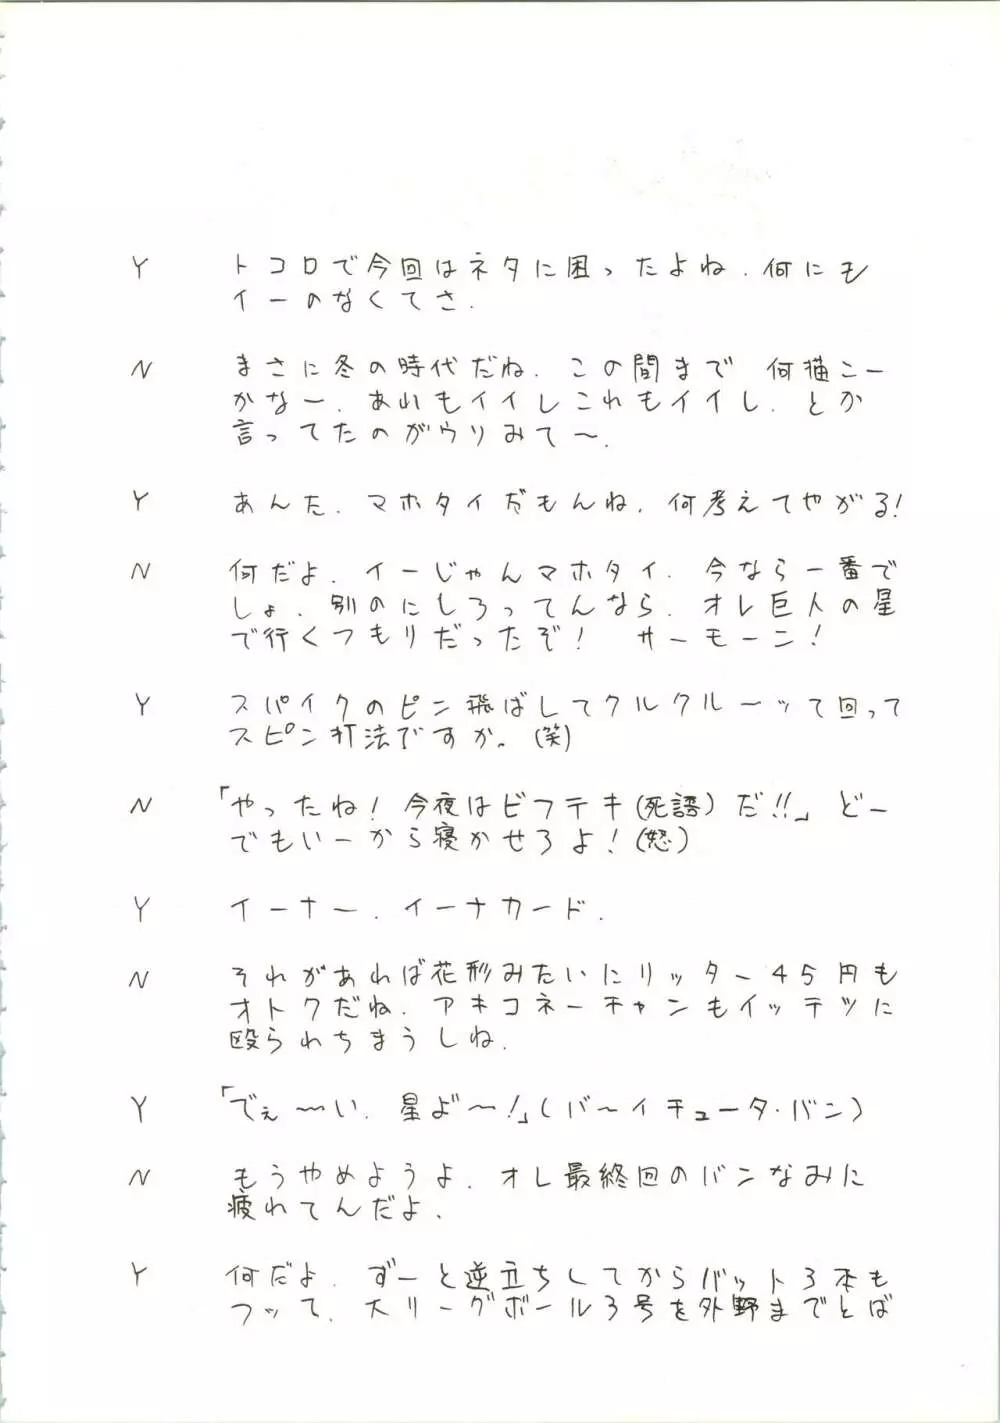 Y トコロで今回はネタに困ったよね.何にも
イーのなくてさ.
N まさに冬の時代だね.この間まで 何描こー
かなー.あれもイイしこれもイイし.とか
言ってたのがウリみて〜.
Y あんた.マホタイだもんね.何考えてやがる!
N 何だよ.イーじゃんマホタイ.今なら一番で
しょ.別のにしろってんなら.オレ巨人の星
で行くつもりだったぞ! サーモーン!
Y スパイクのピン飛ばしてクルクルーッて回って
スピン打法ですか。(笑)
N 「やったね!今夜はビフテキ(死語)だ!!」どー
でもいーから寝かせろよ!(怒)
Y イーナー.イーナカード.
N それがあれば花形みたいにリッター45円も
オトクだね.アキコネーチャンもイッテツに
殴られちまうしね.
Y 「でぇ〜い.星よ〜!」(バ〜イチュータ・バン)
N もうやめようよ.オレ最終回のバンなみに
疲れてんだよ.
Y 何だよ.ずーと逆立ちしてからバット3本も
フッて.大リーグボール3号を外野までとば